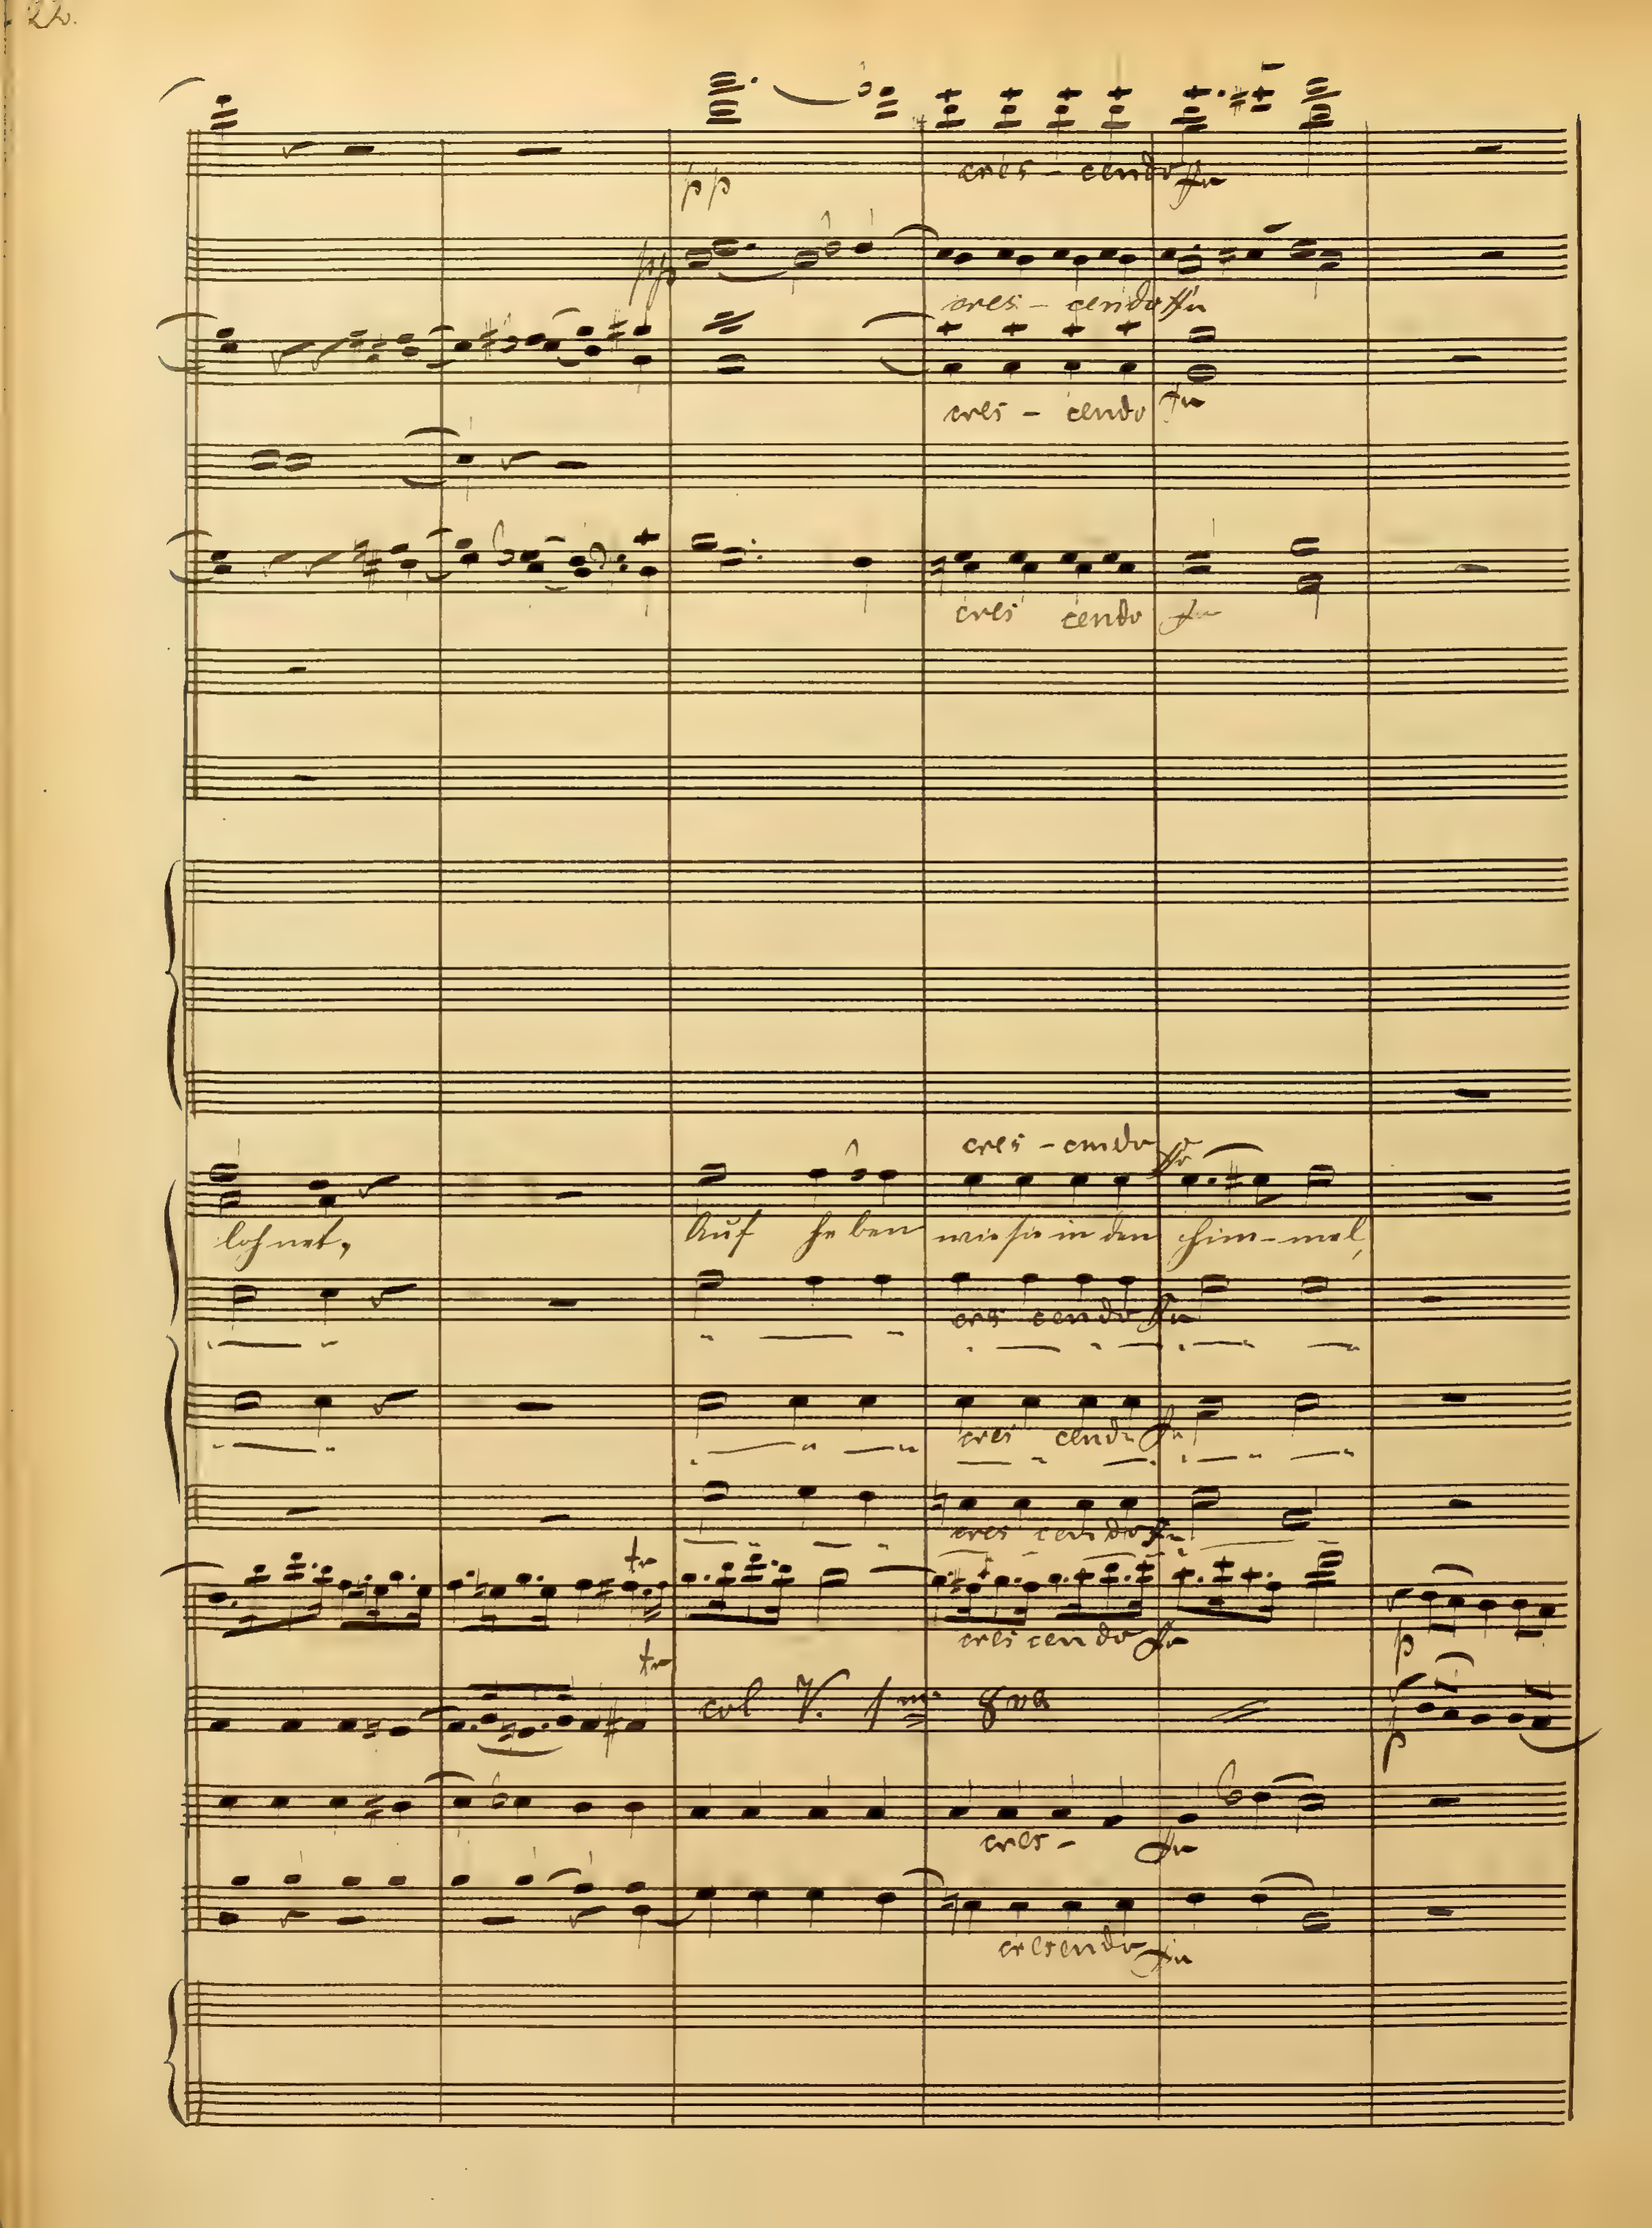 22.
cres - cendo ffu
pp
pp
cres - cendo ffu
cres - cendo fu
cres cendo fu
cres - cendo ffo
lohnet, Auf heben wie sie in den him-mel,
cres cendo ffu
cres cendo fu
cres cendo fu
tr
cres cen do fo
p
tr
col V. 1mo 8va
p
cres - ffu
cresendo fu